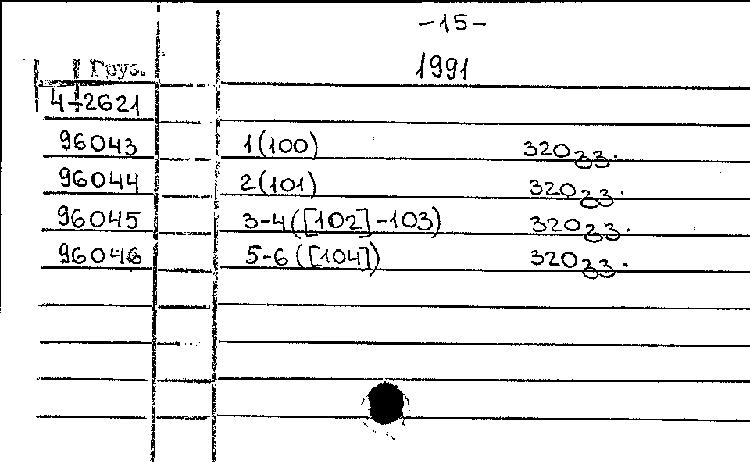 -15-
1991
Груз.
4-2621
96043 1(100) 320 ეგ.
96044 2(101) 320 ეგ.
96045 3-4([102]-103) 320 ეგ.
96046 5-6([104]) 320 ეგ.